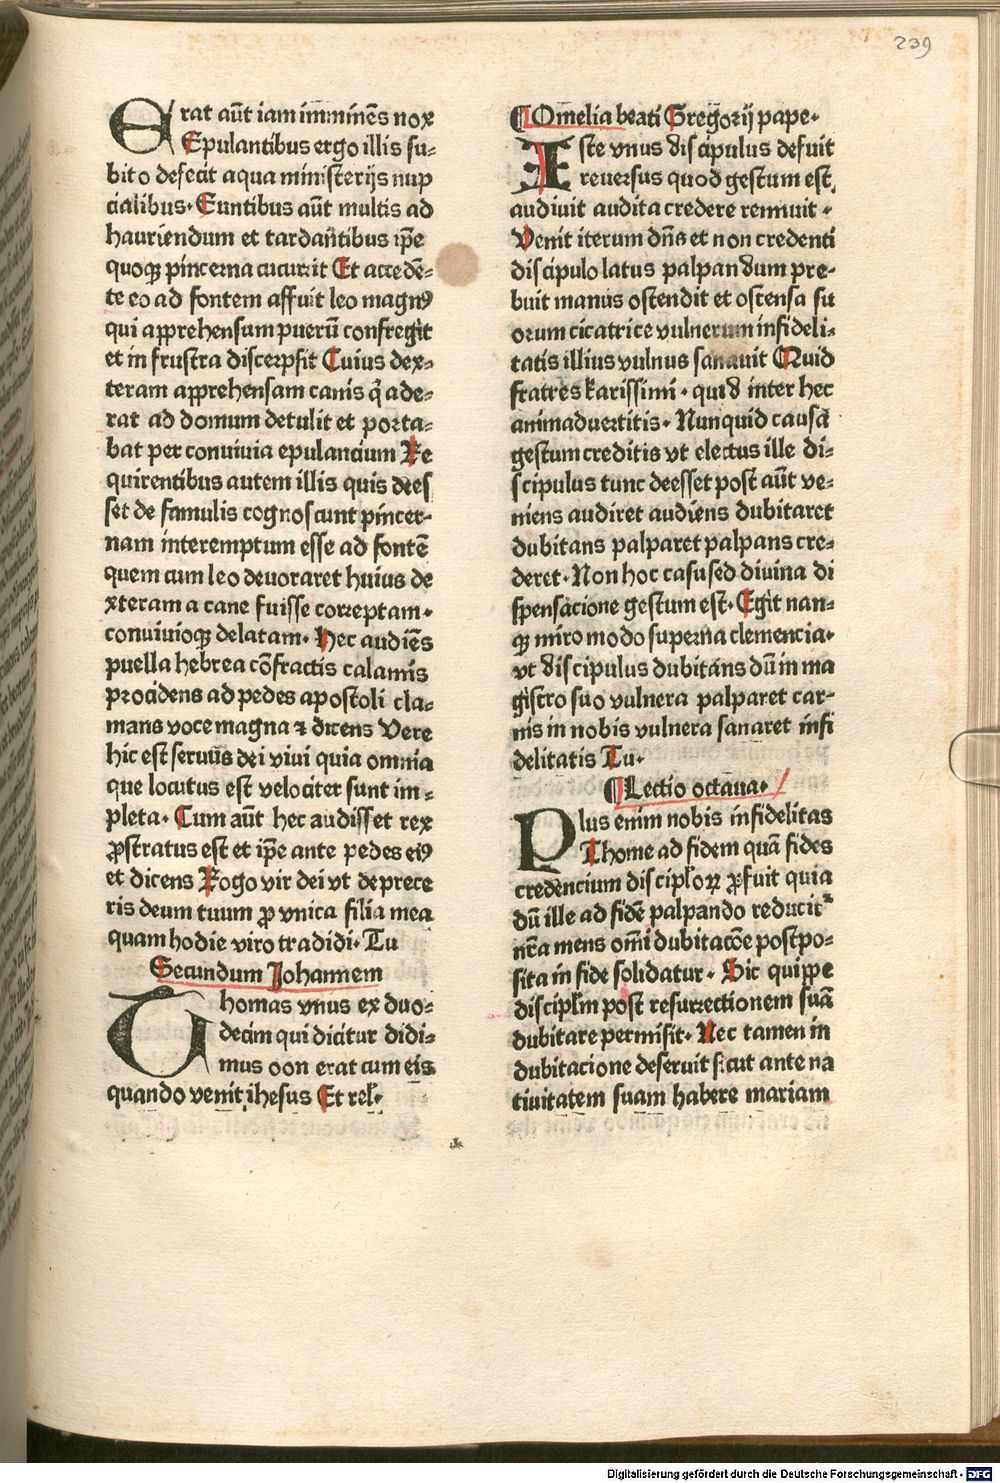 239
Erat aūt iam īmminēs nox
Epulantibus ergo illis su⸗
bito defecit aqua ministerijs nup
cialibus· Euntibus aūt multis ad
hauriendum et tardantibus ip̄e
quoqꝫ pincerna cucurrit Et accedē⸗
te eo ad fontem affuit leo magnꝰ
qui apprehensum puerū confregit
et in frustra discerpsit Cuius dex⸗
teram apprehensam canis q̄ ade⸗
rat ad domum detulit et porta⸗
bat per convivia epulancium Re
quirentibus autem illis quis dees
set de famulis cognoscunt pincer⸗
nam interemptum esse ad fontē
quem cum leo devoraret huius de
xteram a cane fuisse correptam·
convivioqꝫ delatam· Hec audiēs
puella hebrea cōfractis calamis
procidens ad pedes apostoli cla⸗
mans voce magna ⁊ dicens Vere
hic est servus dei vivi quia omnia
que locutus est velociter sunt im⸗
pleta· Cum aūt hec audisset rex
ꝓstratus est et ip̄e ante pedes eiꝰ
et dicens Rogo vir dei vt deprece
ris deum tuum ꝓ vnica filia mea
quam hodie viro tradidi· Tu
Secundum Johannem
Thomas vnus ex duo⸗
decim qui dicitur didi⸗
mus oon erat cum eis
quando venit ihesus Et rel̄·
¶Om̄elia beati Gregorij pape·
Iste vnus discipulus defuit
reversus quod gestum est,
audivit audita credere rennuit·
Venit iterum dn̄s et non credenti
discipulo latus palpandum pre⸗
buit manus ostendit et ostensa su
orum cicatrice vulnerum infideli⸗
tatis illius vulnus sanavit Quid
fratres karissimi· quid inter hec
animadvertitis· Nunquid causā
gestum creditis vt electus ille di⸗
scipulus tunc deesset post aūt ve⸗
niens audiret audiens dubitaret
dubitans palparet palpans cre⸗
deret· Non hoc casu sed divina di
spensacione gestum est· Egit nan⸗
qꝫ miro modo superna clemencia·
vt discipulus dubitans dū in ma
gistro suo vulnera palparet car⸗
nis in nobis vulnera sanaret infi
delitatis Tu·
¶Lectio octava·
Plus enim nobis infidelitas
Thome ad fidem quā fides
credencium discipl̄oꝝ ꝓfuit quia
dū ille ad fidē palpando reducit᷑
nr̄a mens om̄i dubitacōe postpo⸗
sita in fide solidatur· Sic quippe
discipl̄m post resurrectionem suā
dubitare permisit· Nec tamen in
dubitacione deseruit sicut ante na
tivitatem suam habere mariam
Digitalisierung gefördert durch die Deutsche Forschungsgemeinschaft - DFG